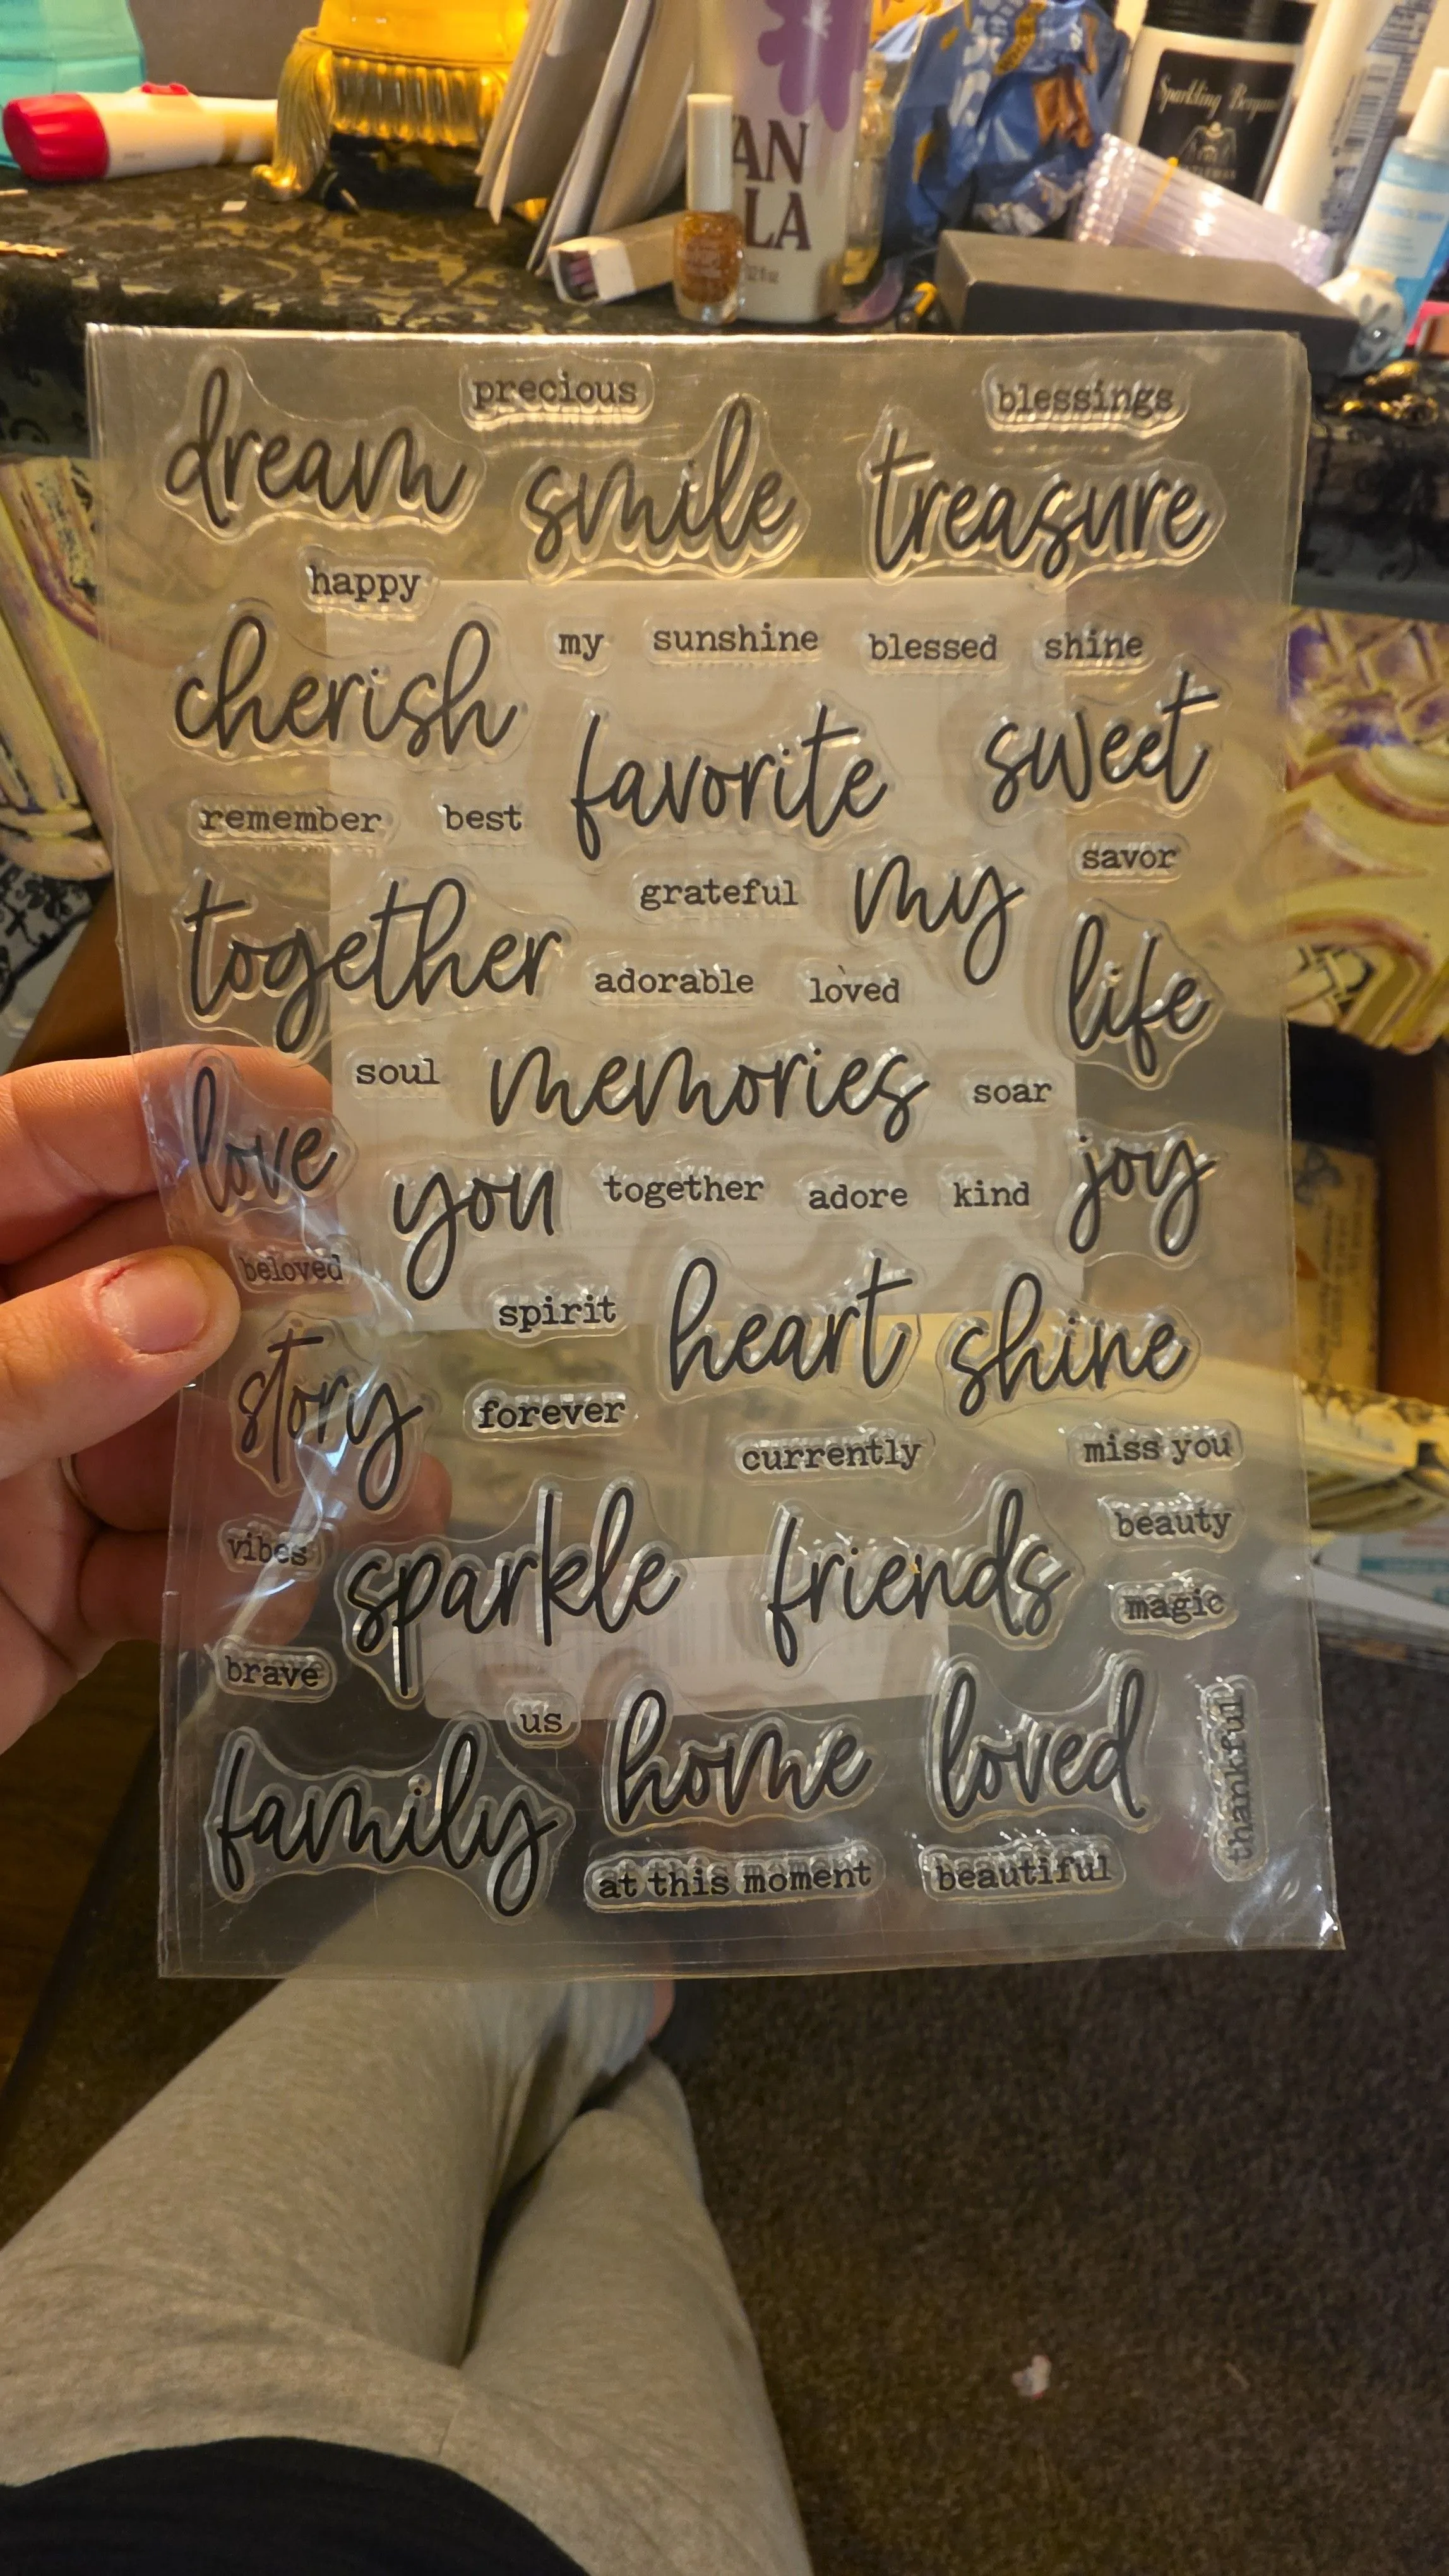 Sparkling
AN
LA
precious
blessings
dream
smile
treasure
happy
my sunshine blessed shine
cherish
favorite
sweet
remember best
savor
grateful
my
together
adorable loved
life
soul
memories
soar
love
you
together adore kind
joy
beloved
spirit
heart
shine
story
forever
currently
miss you
vibes
sparkle
friends
beauty
magic
brave
us
home
loved
thankful
family
at this moment
beautiful